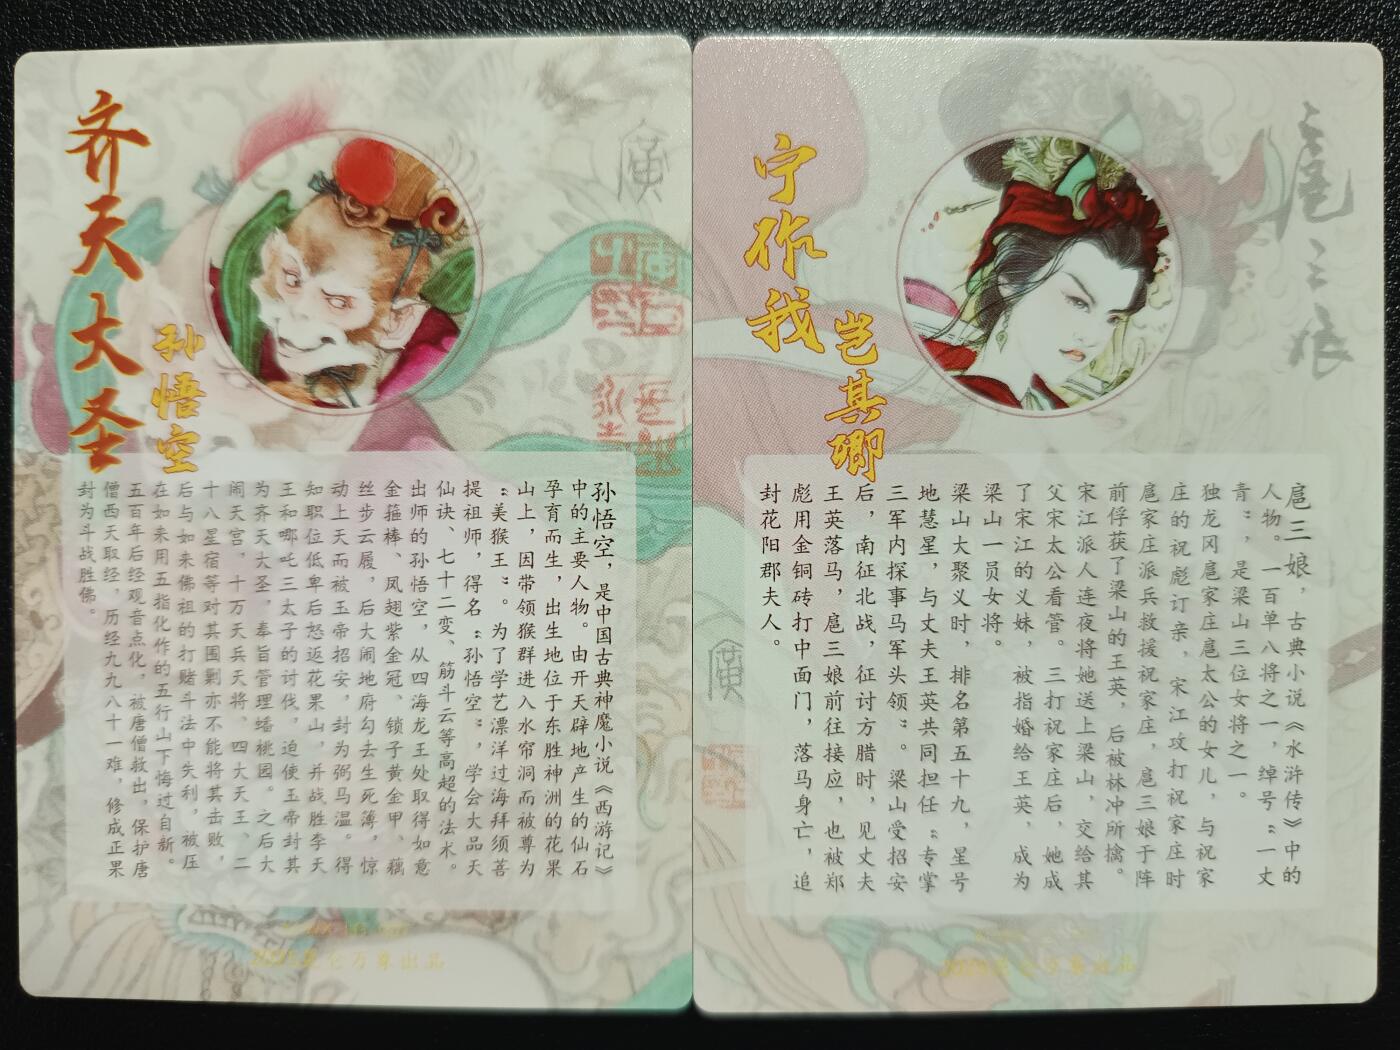 齐天大圣
孙悟空
孙悟空，是中国古典神魔小说《西游记》
中的主要人物。由开天辟地产生的仙石
孕育而生，出生地位于东胜神洲的花果
山上，因带领猴群进入水帘洞而被尊为
“美猴王”。为了学艺漂洋过海拜须菩
提祖师，得名“孙悟空”，学会大品天
仙诀、七十二变、筋斗云等高超的法术。
出师的孙悟空，从四海龙王处取得如意
金箍棒、凤翅紫金冠、锁子黄金甲、藕
丝步云履，后大闹地府勾去生死簿，惊
动上天而被玉帝招安，封为弼马温。得
知职位低卑后怒返花果山，并战胜李天
王和哪吒三太子的讨伐，迫使玉帝封其
为齐天大圣，奉旨管理蟠桃园。之后大
闹天宫，十万天兵天将、四大天王、二
十八星宿等对其围剿亦不能将其击败，
后与如来佛祖的打赌斗法中失利，被压
在如来用五指化作的五行山下悔过自新。
五百年后经观音点化，被唐僧救出，保护唐
僧西天取经，历经九九八十一难，修成正果
封为斗战胜佛。
廣
2025昆仑万象出品
宁作我
岂其卿
扈三娘
扈三娘，古典小说《水浒传》中的
人物。一百单八将之一，绰号“一丈
青”，是梁山三位女将之一。
独龙冈扈家庄扈太公的女儿，与祝家
庄的祝彪订亲，宋江攻打祝家庄时
扈家庄派兵救援祝家庄，扈三娘于阵
前俘获了梁山的王英，后被林冲所擒。
宋江派人连夜将她送上梁山，交给其
父宋太公看管。三打祝家庄后，她成
了宋江的义妹，被指婚给王英，成为
梁山一员女将。
梁山大聚义时，排名第五十九，星号
地慧星，与丈夫王英共同担任“专掌
三军内探事马军头领”。梁山受招安
后，南征北战，征讨方腊时，见丈夫
王英落马，扈三娘前往接应，也被郑
彪用金铜砖打中面门，落马身亡，追
封花阳郡夫人。
廣
2025昆仑万象出品